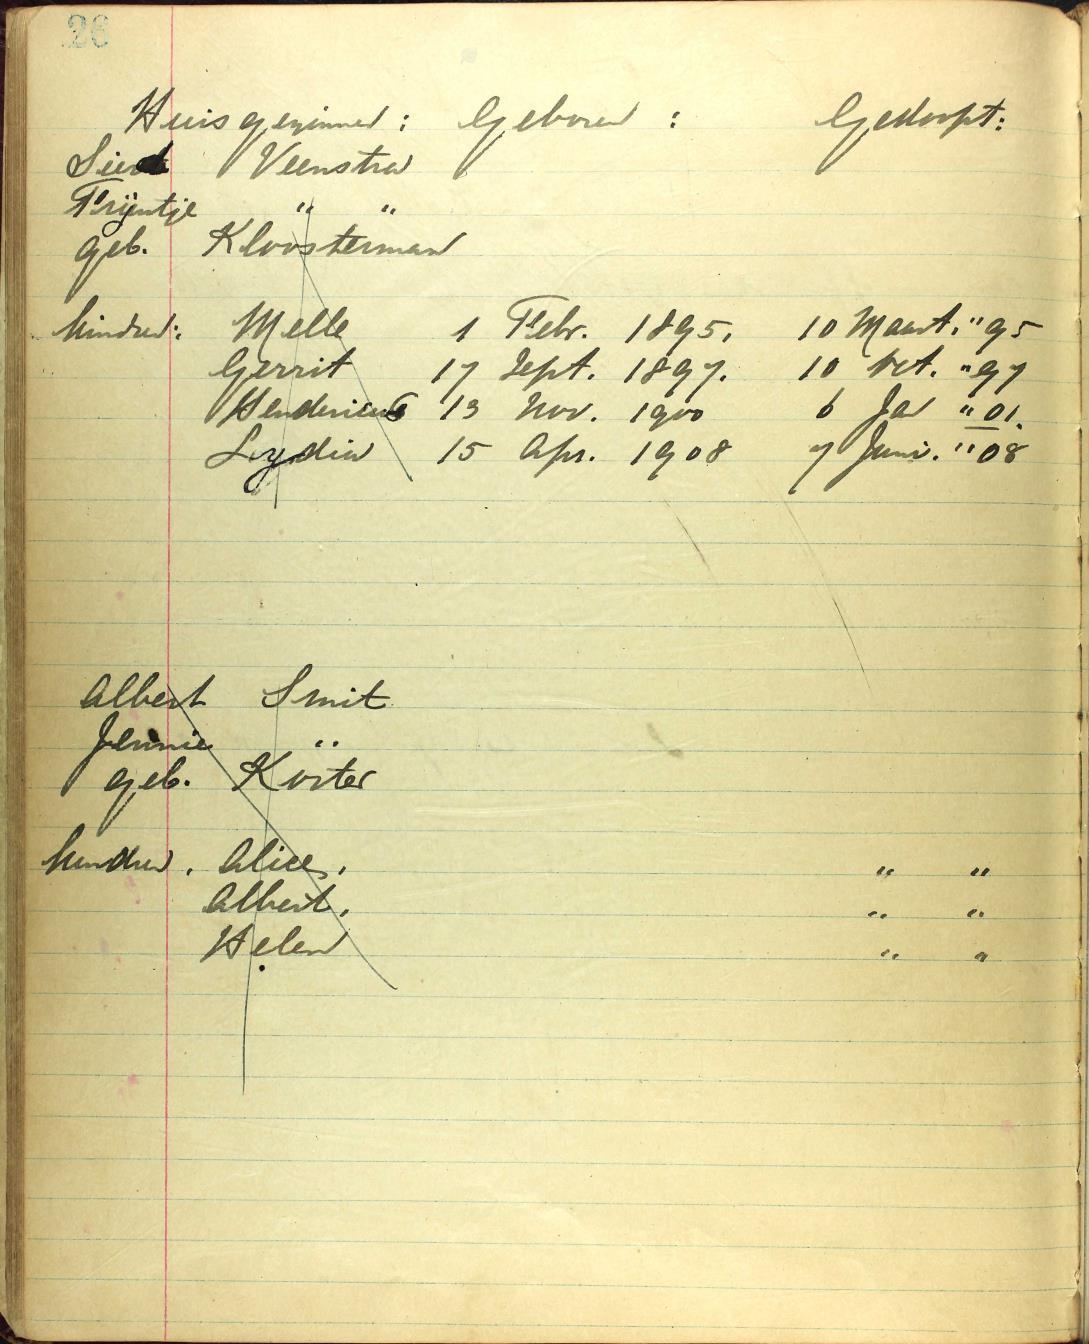 26
Huisgezinnen : Geboren : Gedoopt:
Sierd Veenstra
Trijntje " "
geb. Kloosterman
kinderen: Melle 1 Febr. 1895. 10 Maart. "95
Gerrit 17 Sept. 1897. 10 Oct. "97
Hendericus 13 Nov. 1900 6 Jan "01.
Lydia 15 Apr. 1908 7 Juni. "08
Albert Smit
Jennie "
geb. Koster
kinderen. Alice, " "
Albert, " "
Helen " "